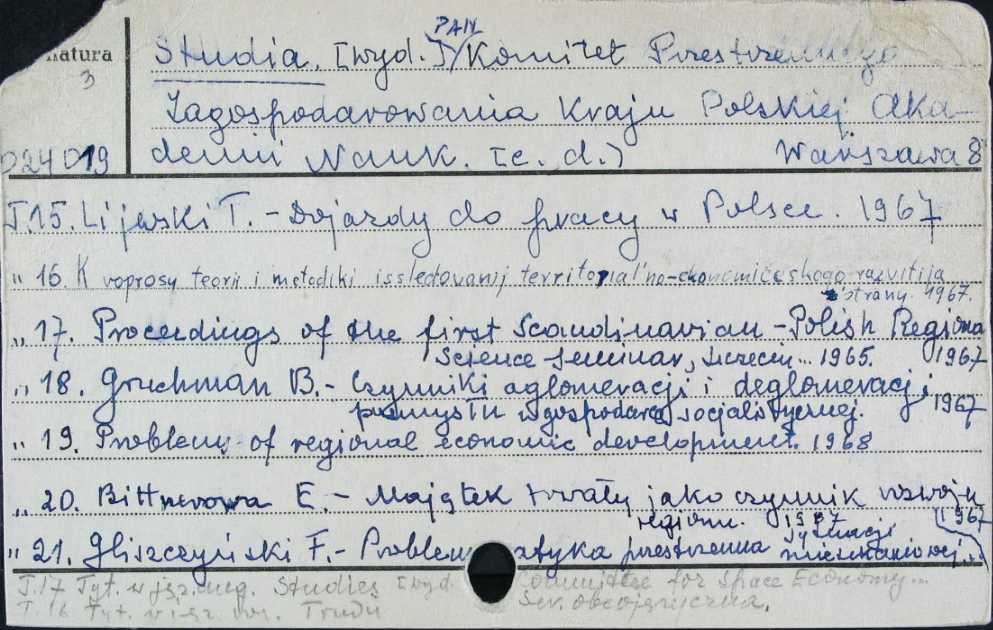 PAN
natura Studia. [wyd.] Komitet Przestrzennego
3
Zagospodarowania Kraju Polskiej Aka-
024019 demii Nauk. [c. d.] Warszawa 8°
T.15. Lijewski T. - Dojazdy do pracy w Polsce. 1967
" 16. K voprosy teorii i metodiki issledovanij territorial'no-ekonomičeskogo razvitija
strany. 1967.
" 17. Proceedings of the first Scandinavian - Polish Regional
Science Seminar, Szczecin... 1965. 1967
" 18. Gruchman B. - Czynniki aglomeracji i deglomeracji
przemysłu w gospodarce socjalistycznej. 1967
" 19. Problems of regional economic development. 1968
" 20. Bittnerowa E. - Majątek trwały jako czynnik rozwoju
regionu. 1967 1967
" 21. Gliszczyński F. - Problematyka przestrzenna sytuacji
mieszkaniowej...
T.17 Tyt. w jęz. ang. Studies [wyd. Committee for Space Economy...
T. 16 Tyt. w jęz. ros. Trudy Ser. obcojęzyczna.